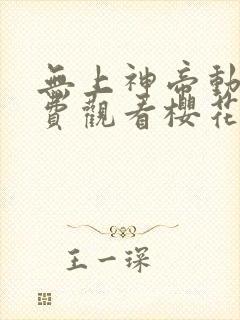 無上神帝動
費觀看櫻花
王一琛